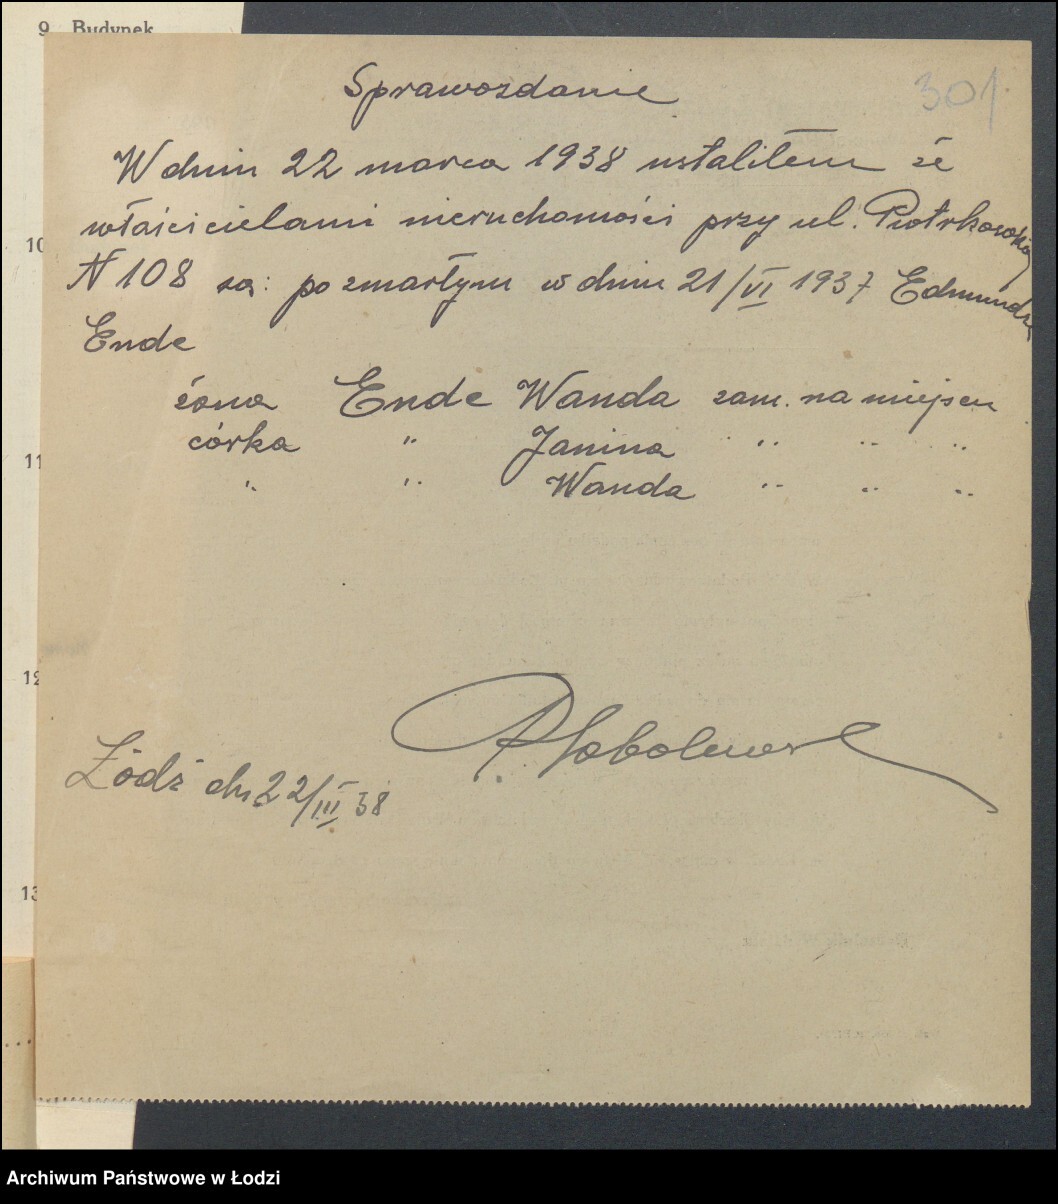 9. Budynek
301
Sprawozdanie
W dniu 22 marca 1938 ustaliłem że
właścicielami nieruchomości przy ul. Piotrkowskiej
N 108 są: po zmarłym w dniu 21/VI 1937 Edmundzie
Ende
żona Ende Wanda zam. na miejscu
córka " Janina " " "
" " Wanda " " "
Łódź dn 22/III 38
10
11
12
13
Archiwum Państwowe w Łodzi